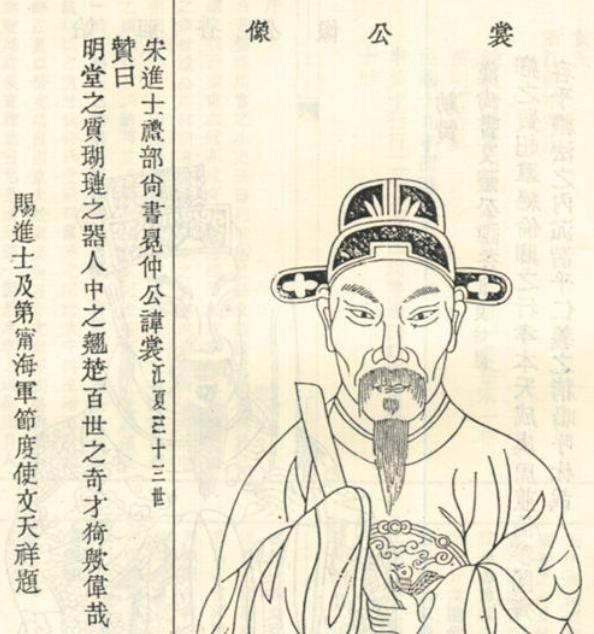 裳公像
宋進士禮部尚書冕仲公諱裳江夏三十三世
贊曰
明堂之質瑚璉之器人中之翹楚百世之奇才猗歟偉哉
賜進士及第甯海軍節度使文天祥題